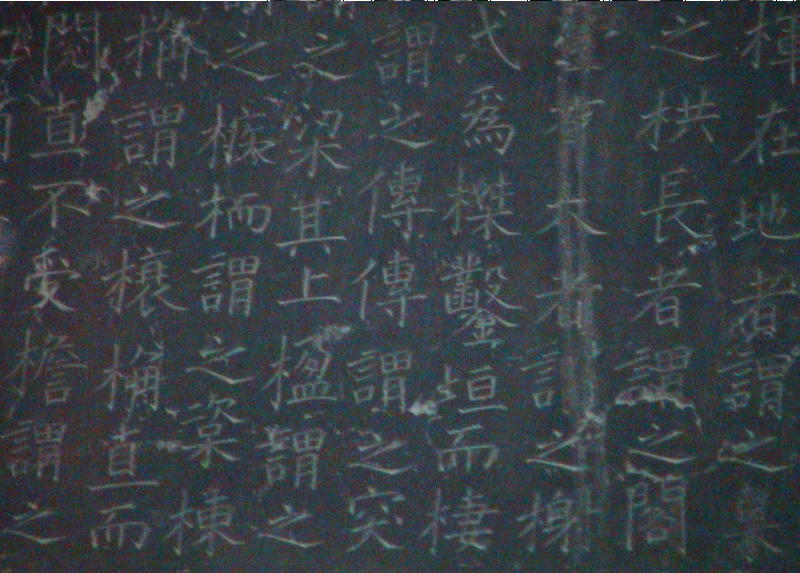 楎在地者謂之臬
之栱長者謂之閣
臺有木者謂之榭
弋爲榤鑿垣而棲
謂之傳傳謂之突
之梁其上楹謂之
之槉栭謂之楶棟
桷謂之榱桷直而
閱直不受檐謂之